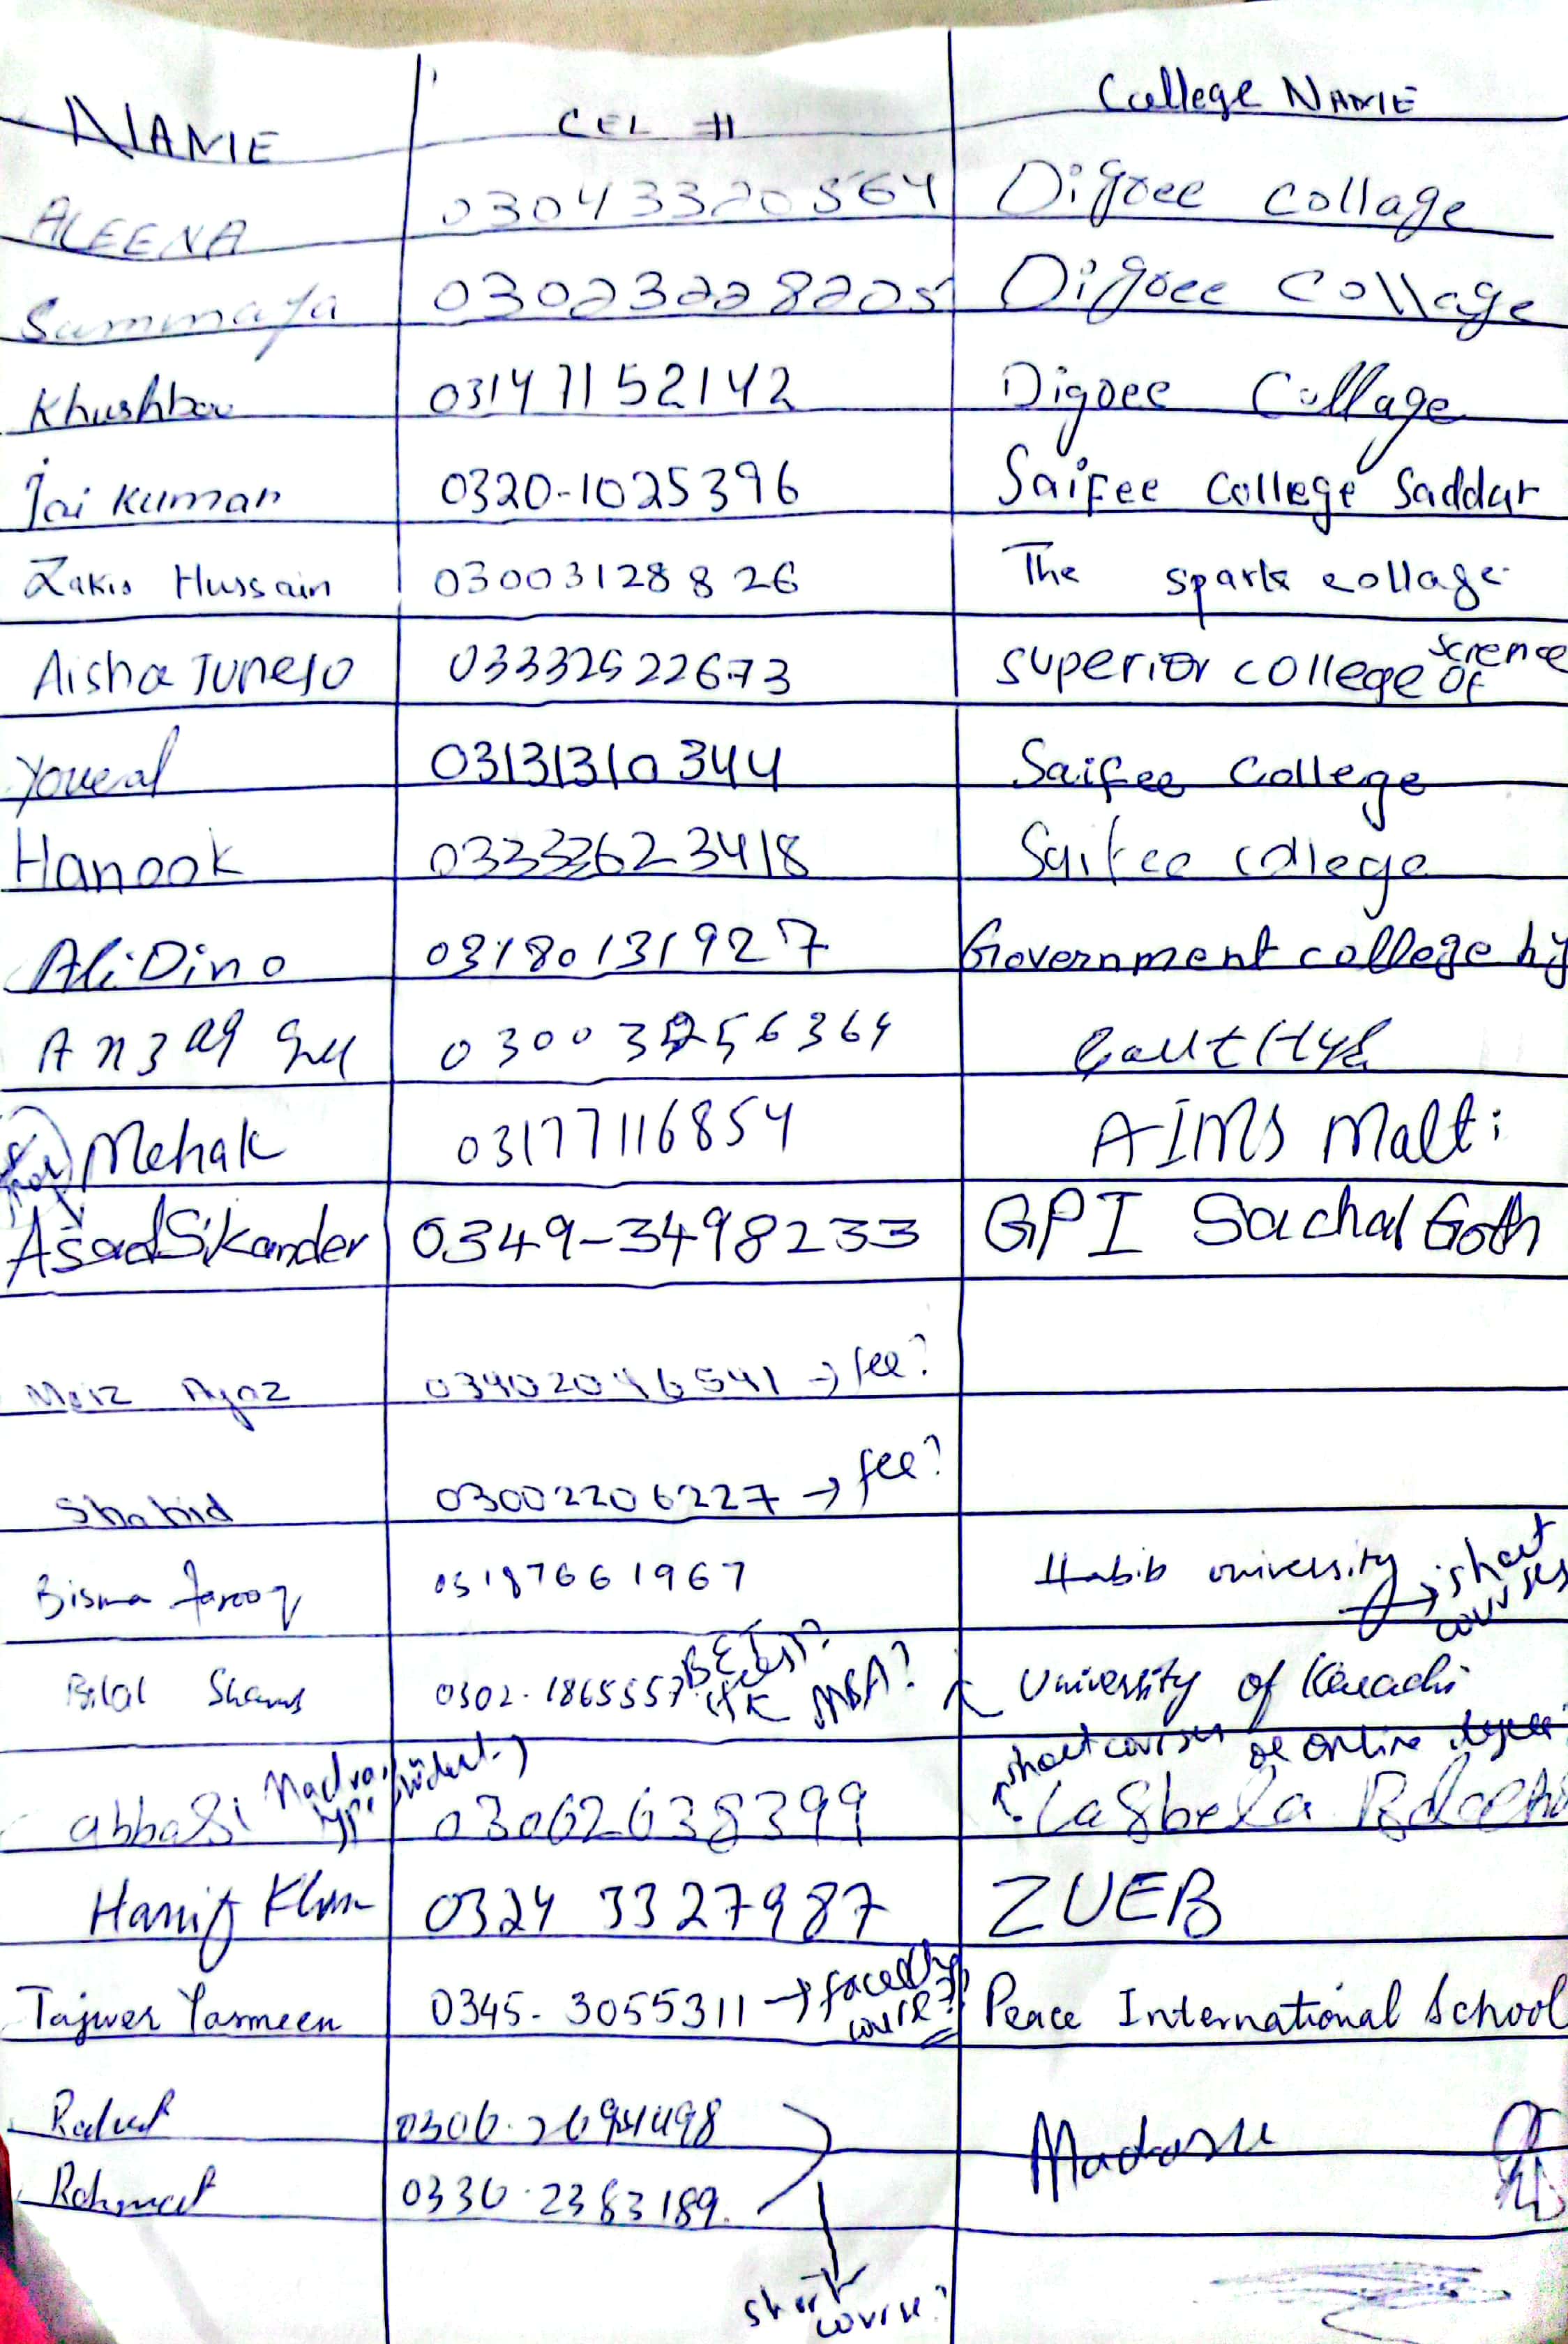 NAME CEL # College NAME
ALEENA 03043320564 Digree collage
Summaya 03023228205 Digree Collage
Khushboo 03147152142 Digree Collage
Jai Kumar 0320-1025396 Saifee College Saddar
Zakir Hussain 03003128826 The spark collage
Aisha Junejo 03332522673 superior college of science
Youeal 03131310344 Saifee College
Hanook 03333623418 Saifee college
Ali Dino 03180131927 Government college hy
Gul 0300
Mehak 03177116854 AIMS Malti
Asad Sikander 0349-3498233 GPI Sachal Goth
Moiz Ayaz 03402046541 → fee?
Shahid 03002206227 → fee?
Bisma farooq 03187661967 Habib university → short courses
Bilal Shams 0302-1865557 MBA? University of Karachi
short courses or online degree
abbasi 03062638399 Lasbela
Hanif Khan 0324 3327987 ZUEB
Tajwer Yasmeen 0345-3055311 → course? Peace International School
Rahmat 0330-2383189
short course?